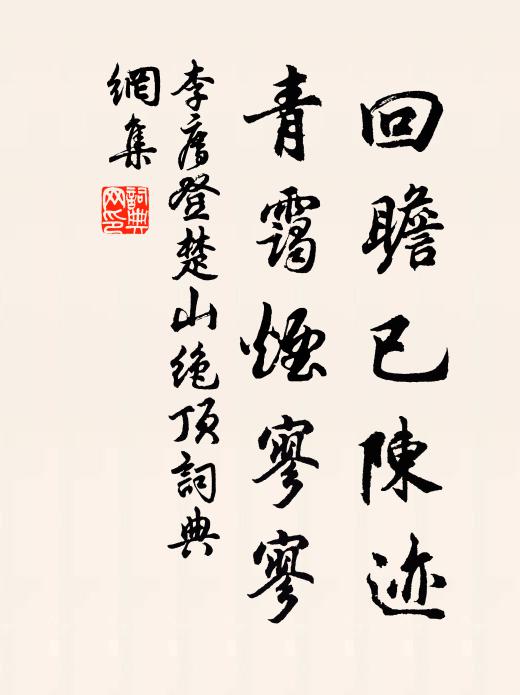 回瞻已陳迹
青靄煙寥寥
李廌登楚山絶頂詞典
網集
詞典網印